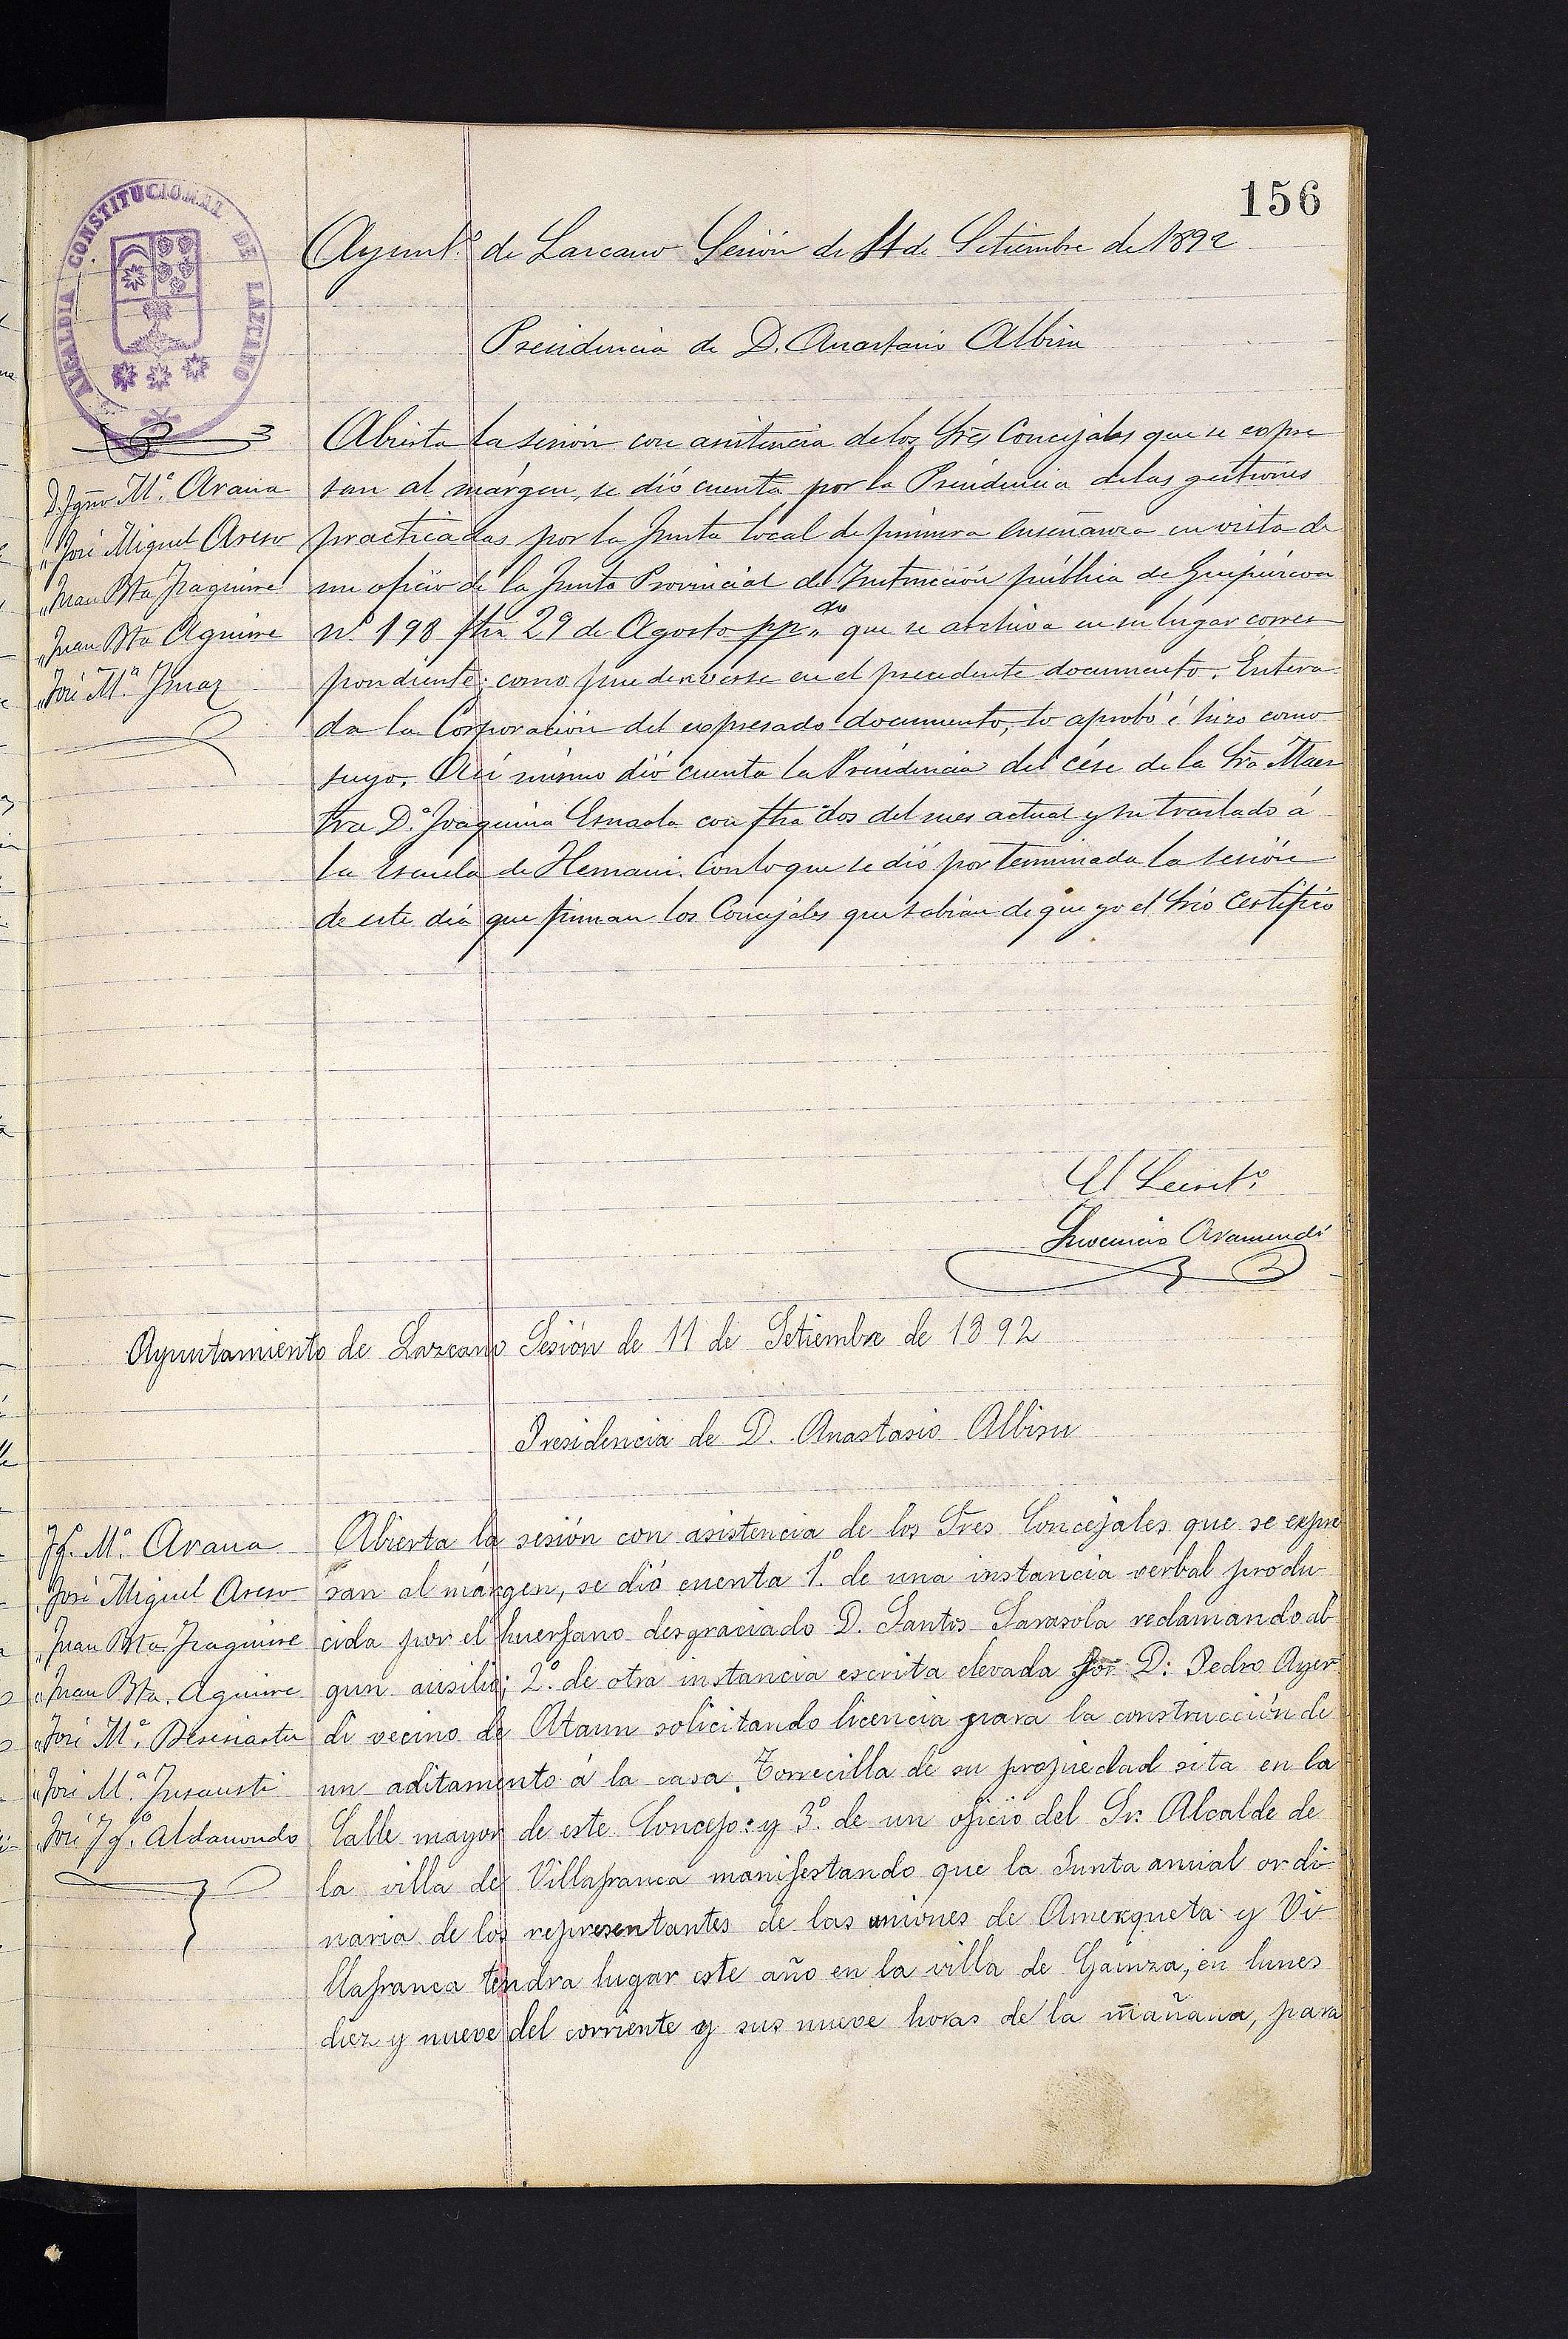 156
ALCALDIA CONSTITUCIONAL DE LAZCANO
Ayunt.º de Lazcano Sesión de 4 de Setiembre de 1892
Presidencia de D. Anastasio Albisu
D. Ygn.º M.ª Arana
" José Miguel Areso
" Juan Bta Yraguirre
" Juan Bta Aguirre
" José M.ª Ymaz
Abierta la sesión con asistencia de los Sres Concejales que se expre
san al márgen, se dió cuenta por la Presidencia de las gestiones
practicadas por la Junta local de primera enseñanza en vista de
un oficio de la Junta Provincial de Instrucción pública de Guipúzcoa
nº 198 fha 29 de Agosto pp.do que se archiva en su lugar corres
pondiente; como puede verse en el precedente documento. Entera
da la Corporación del expresado documento, lo aprobó é hizo como
suyo. Así mismo dió cuenta la Presidencia del cése de la Sra Maes
tra D.ª Joaquina Esnaola con fha dos del mes actual y su traslado á
la Escuela de Hernani. Con lo que se dió por terminada la sesión
de este dia que firman los Concejales que sabian de que yo el Srio Certifico
El Secret.º
Ynocencio Aramendi
Ayuntamiento de Lazcano Sesión de 11 de Setiembre de 1892
Presidencia de D. Anastasio Albisu
Yg.º M.ª Arana
" José Miguel Areso
" Juan Bta. Yraguirre
" Juan Bta. Aguirre
" José M.ª
" José M.ª Ynsausti
" José Yg.º Aldanondo
Abierta la sesión con asistencia de los Sres Concejales que se expre
san al márgen, se dió cuenta 1.º de una instancia verbal produ
cida por el huerfano desgraciado D. Santos Sarasola reclamando al
gun ausilio; 2.º de otra instancia escrita elevada por D. Pedro Ayer
di vecino de Ataun solicitando licencia para la construcción de
un aditamento á la casa Torrecilla de su propiedad sita en la
Calle mayor de este Concejo: y 3.º de un oficio del Sr. Alcalde de
la villa de Villafranca manifestando que la Junta anual ordi
naria de los representantes de las uniones de Amezqueta y Vi
llafranca tendra lugar este año en la villa de Gainza, en lunes
diez y nueve del corriente y sus nueve horas de la mañana, para